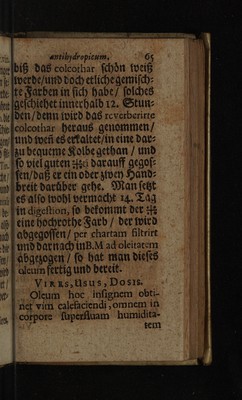 antihydropicum.         65
biß das colcothar schön weiß
werde/und doch etliche gemisch-
te Farben in sich habe/ solches
geschiehet innerhalb 12. Stun-
den/denn wird das reverberirte
colcothar heraus genommen/
und weñ es erkaltet/in eine dar-
zu bequeme Kolbe gethan/ und
so viel guten darauff gegos-
sen/daß er ein oder zwen Hand-
breit darüber gehe. Man setzt
es also wohl vermacht 14. Tag
in digestion, so bekommt der
eine hochrothe Farb/ der wird
abgegossen/ per chartam filtrirt
und darnach in B.M ad oleitatem
abgezogen/ so hat man dieses
oleum fertig und bereit.
VIRES, USUS, DOSIS.
Oleum hoc insignem obti-
net vim calefaciendi, omnem in
corpore superfluam humidita-
tem